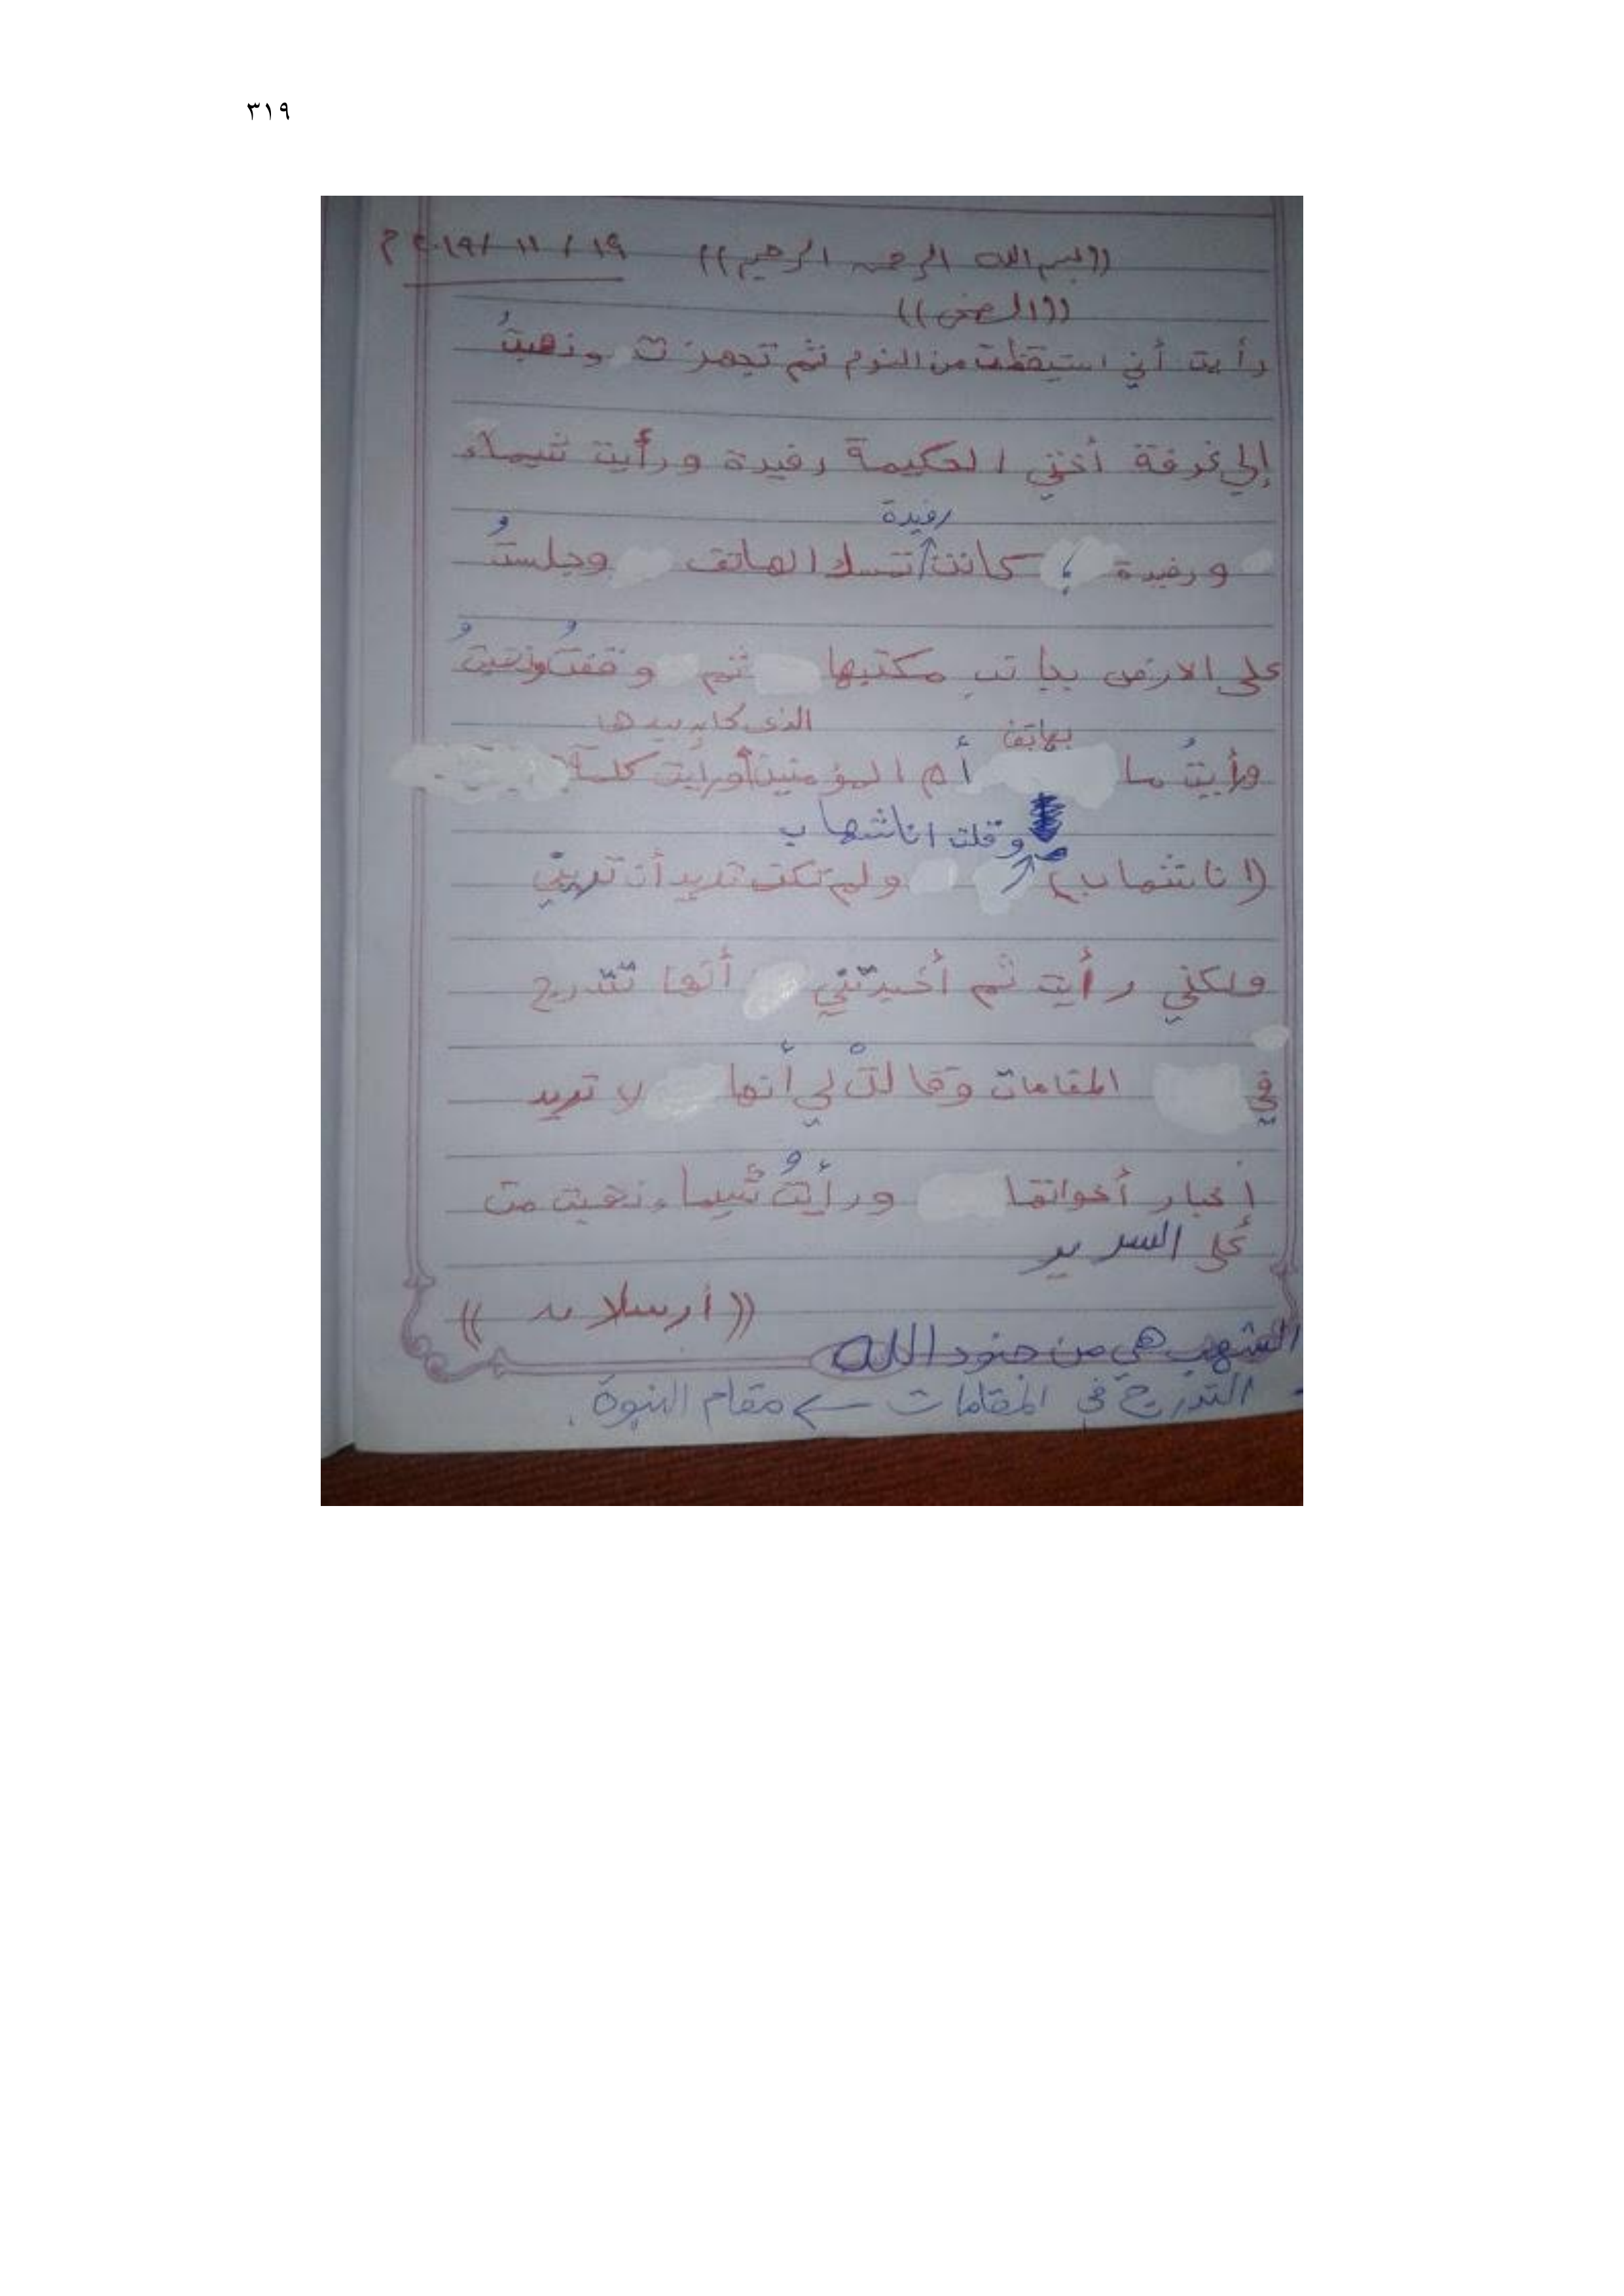 ٣١٩
((بسم الله الرحمن الرحيم)) ١٩ / ١١ / ٢٠١٩ م
رأيت أني استيقظت من النوم ثم تجهزت وذهبتُ
إلى غرفة أختي الحكيمة رفيدة ورأيت شيماء
رفيدة
ورفيدة ؛ كانت تمسك الهاتف وجلستُ
على الارض بجانب مكتبها ثم وقفتُ
الذي كان بيدها
بهاتف
ورأيتُ ما أم المؤمنين ورأيت كلمة
وقلت انا شهاب
(انا شهاب) ولم تكن تريد أن تريني
ولكني رأيت ثم أخبرتني أنها تتدرج
في المقامات وقالتْ لي أنها لا تريد
أخبار أخواتها ورأيتُ شيماء ذهبت من
على السرير
((أرسلان))
الشهب هي من جنود الله
- التدرج في المقامات ← مقام النبوة.